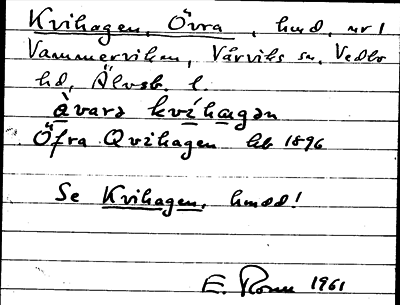 Kvihagen, Övra, hmd, nr 1
Vammerviken, Vårviks sn, Vedbo
hd, Älvsb. l.
àvarə kvíhægən
Öfra Qvihagen hb 1896
Se Kvihagen, hmdd!
E. 1961